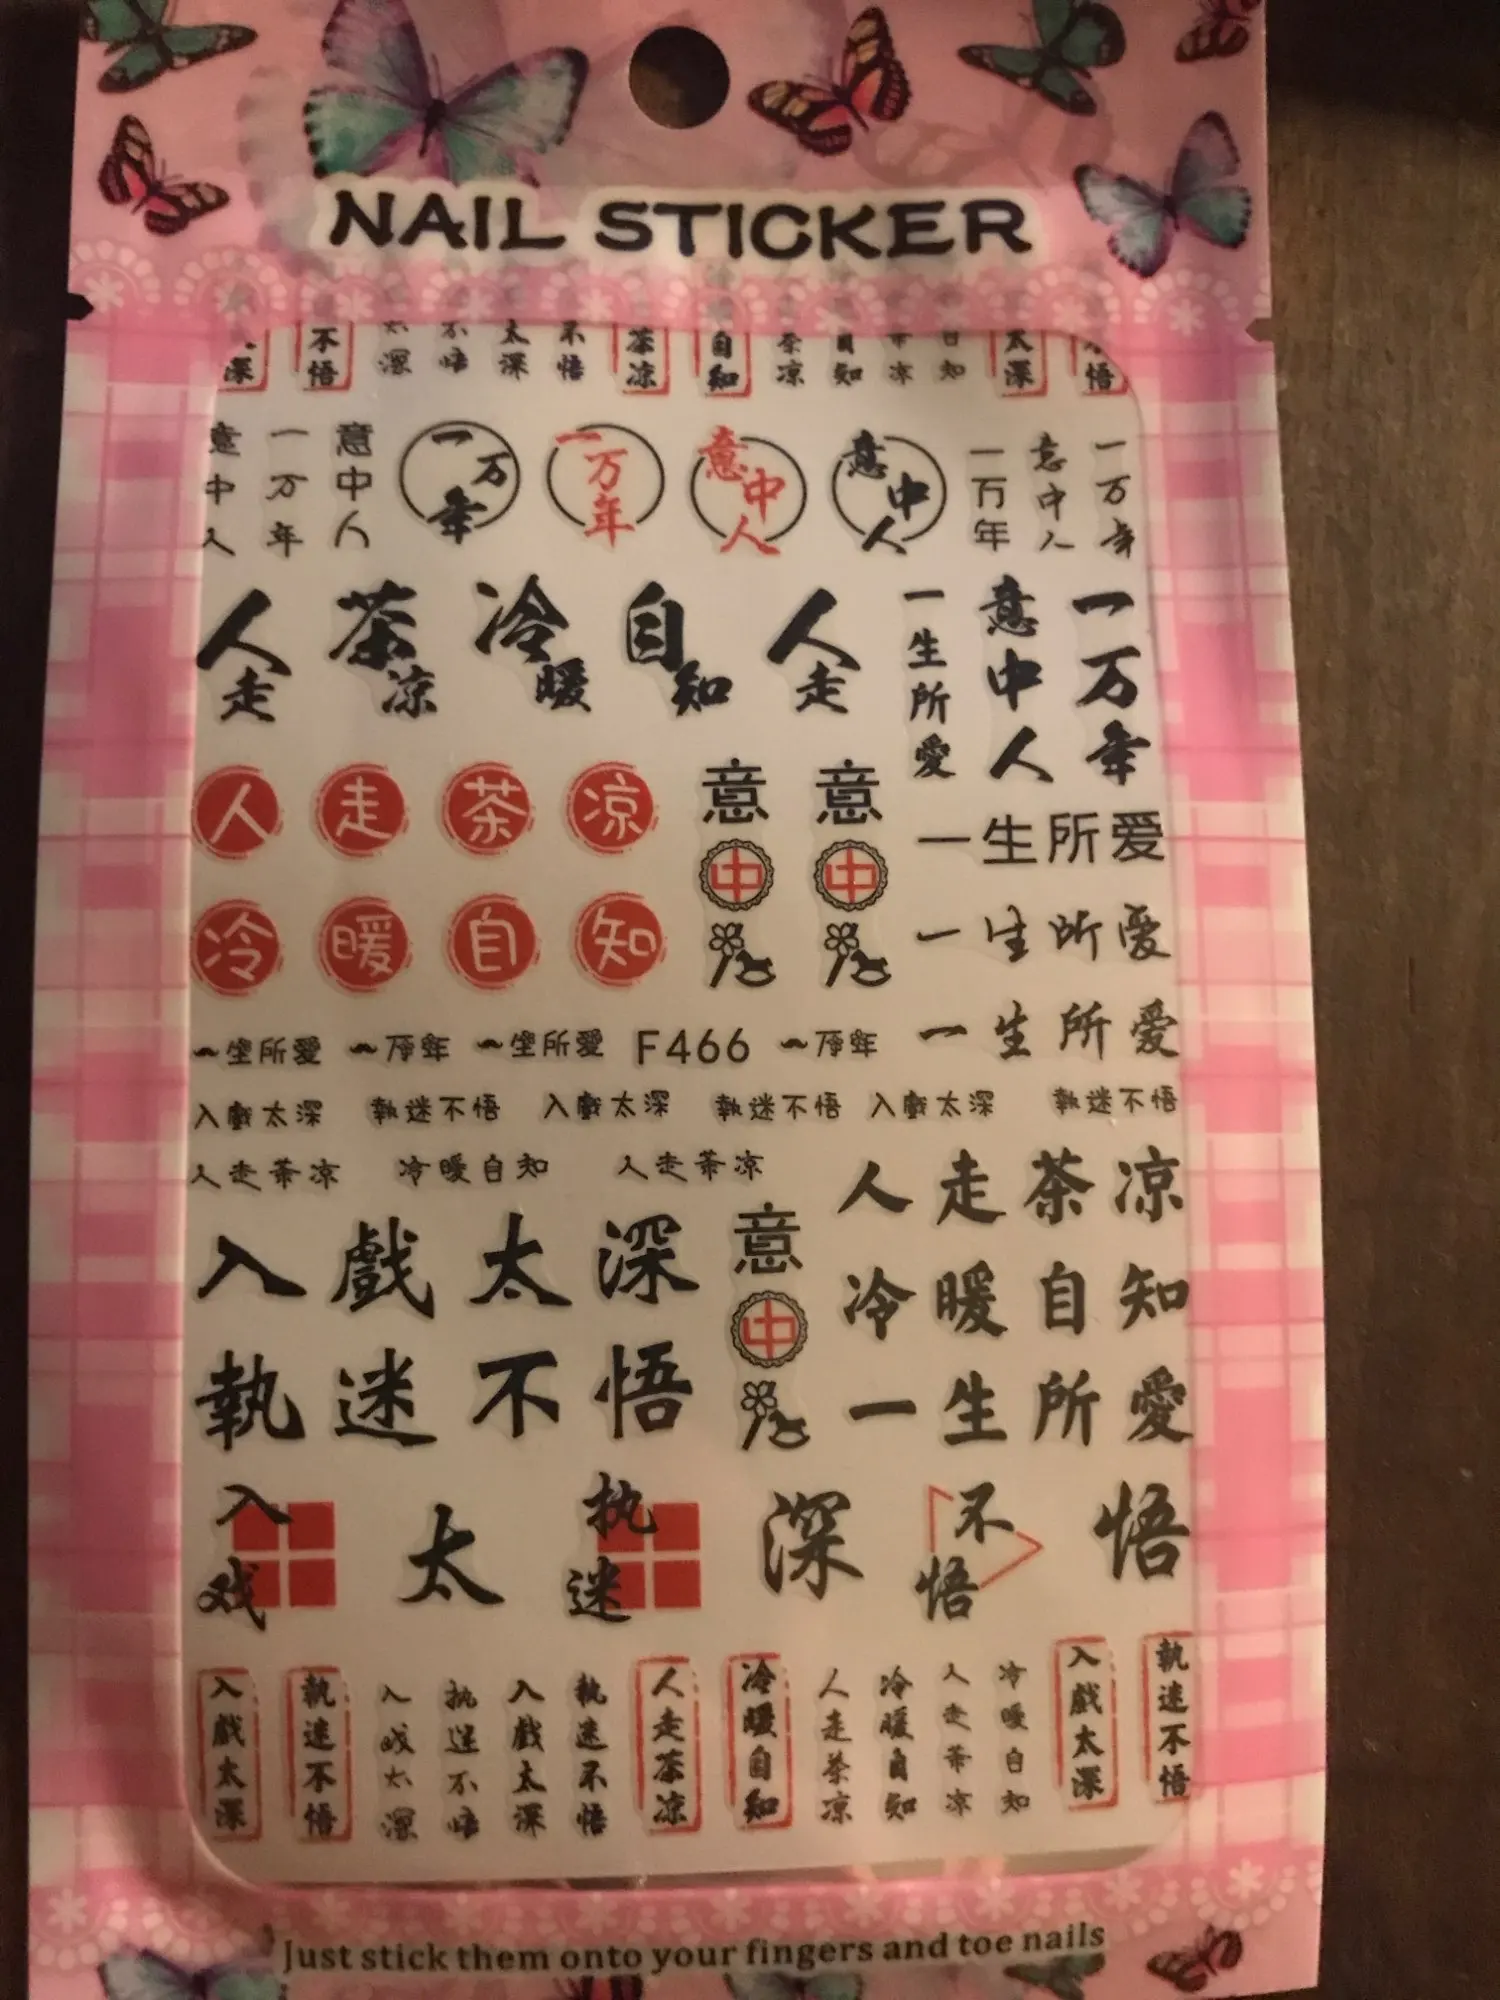 NAIL STICKER
深 不悟 太深 不悟 太深 不悟 茶凉 自知 茶凉 自知 茶凉 自知 太深 悟
意中人 一万年 意中人 一万年 一万年 意中人 意中人 一万年 意中人 一万年
人走 茶凉 冷暖 自知 人走 一生所愛 意中人 一万年
人 走 茶 凉 意中 意中
一生所爱
冷 暖 自 知
一生所愛
一生所愛 一万年 一生所愛 F466 一万年
一生所爱
入戲太深 執迷不悟 入戲太深 執迷不悟 入戲太深 執迷不悟
人走茶凉 冷暖自知 人走茶凉
人走茶凉
入戲太深 意中
冷暖自知
執迷不悟
一生所愛
入戏 太 执迷 深 不悟 悟
入戲太深 執迷不悟 入戏太深 执迷不悟 入戲太深 執迷不悟 人走茶凉 冷暖自知 人走茶凉 冷暖自知 人走茶凉 冷暖自知 入戲太深 執迷不悟
Just stick them onto your fingers and toe nails